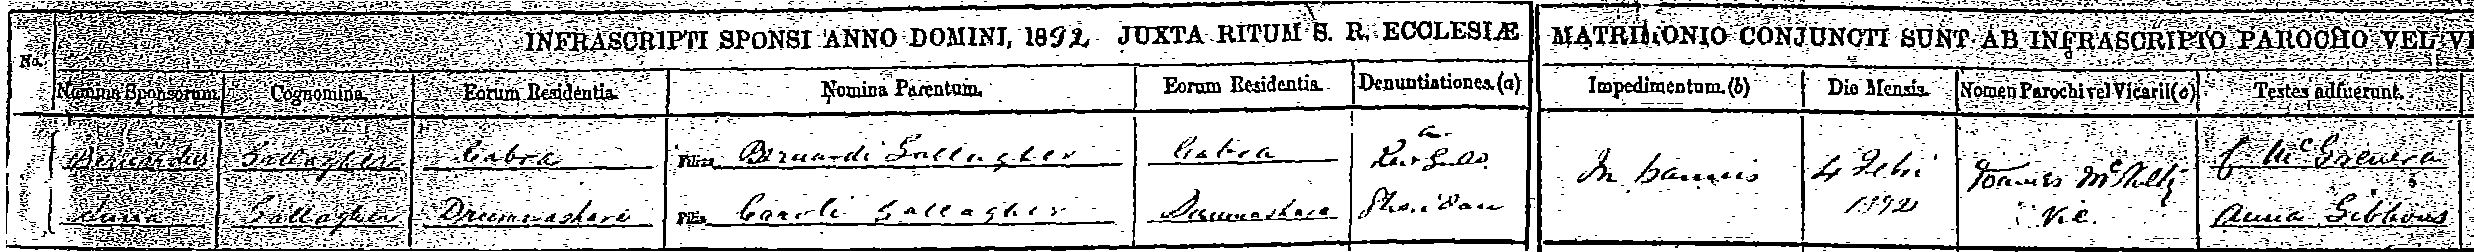 INFRASCRIPTI SPONSI ANNO DOMINI, 1892 JUXTA RITUM S. R. ECCLESIÆ MATRIMONIO CONJUNCTI SUNT AB INFRASCRIPTO PAROCHO VEL VI
No.
Nomina Sponsorum Cognomina Eorum Residentia Nomina Parentum. Eorum Residentia Denuntiationes (a) Impedimentum. (b) Die Mensis Nomen Parochi vel Vicarii (c) Testes adfuerunt.
Bernardus Gallagher Cabra Filius Bernardi Gallagher Cabra In bannis 4 Febi 1892 Vic.
Anna Gallagher Filia Caroli Gallagher Sheridan Anna Gibbons